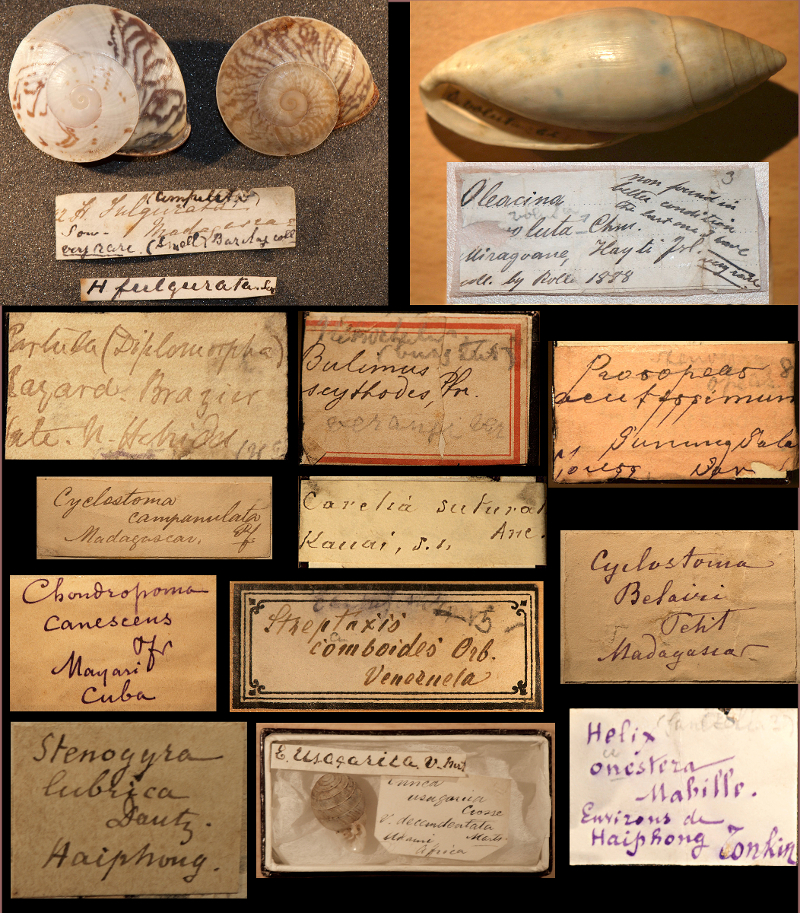 (Complete)
H. Fulgurata
Sow. Madagascar
very rare. (Small) Barclay coll
H fulgurata.
3
non found in
better condition
the last one I have
very rare
Oleacina
voluta Chm.
Miragoane, Hayti Isl.
coll. by Rolle 1888
Partula (Diplomorpha)
Layard. Brazier
Vate. N. Hebrides
Bulimus
scythodes, Pfr.
Prosopeas 8
acutissimum
Gunung Sala
Cyclostoma
campanulata
Madagascar. Pf.
Carelia sutural
Anc.
Kauai, s.i.
Cyclostoma
Belairi
Petit
Madagascar
Chondropoma
canescens
Pfr
Mayari
Cuba
Streptaxis
comboides Orb.
Venezuela
Stenogyra
lubrica
Dautz.
Haiphong.
E. usagarica v.
Ennea
usagarica
Crosse
v. decendentata
Mts.
Africa
Helix
onestera
Mabille.
Environs de
Haiphong Tonkin